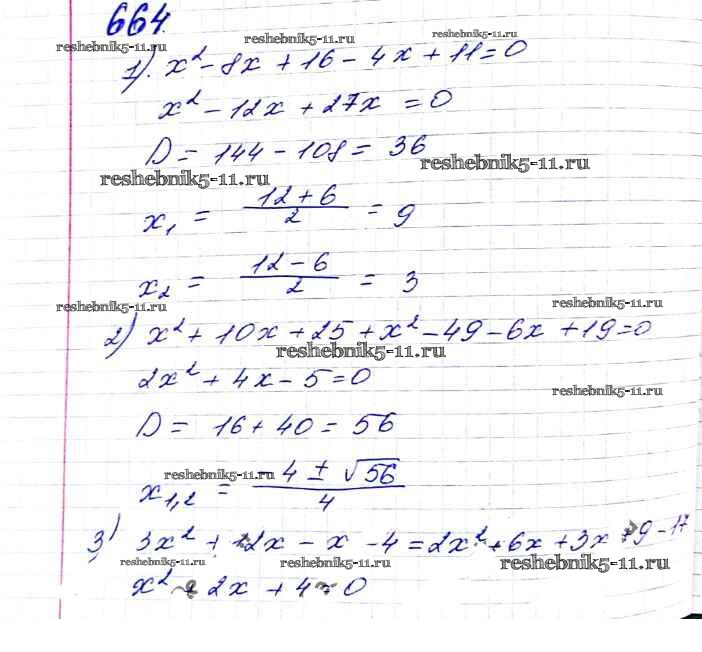 664.
reshebnik5-11.ru reshebnik5-11.ru
1). x² - 8x + 16 - 4x + 11 = 0
x² - 12x + 27x = 0
D = 144 - 108 = 36
reshebnik5-11.ru reshebnik5-11.ru
x₁ = (12 + 6)/2 = 9
x₂ = (12 - 6)/2 = 3
reshebnik5-11.ru reshebnik5-11.ru
2) x² + 10x + 25 + x² - 49 - 6x + 19 = 0
reshebnik5-11.ru
2x² + 4x - 5 = 0
reshebnik5-11.ru
D = 16 + 40 = 56
reshebnik5-11.ru
x₁,₂ = (-4 ± √56)/4
3) 3x² + 12x - x - 4 = 2x² + 6x + 3x + 9 - 17
reshebnik5-11.ru reshebnik5-11.ru
x² + 2x + 4 = 0